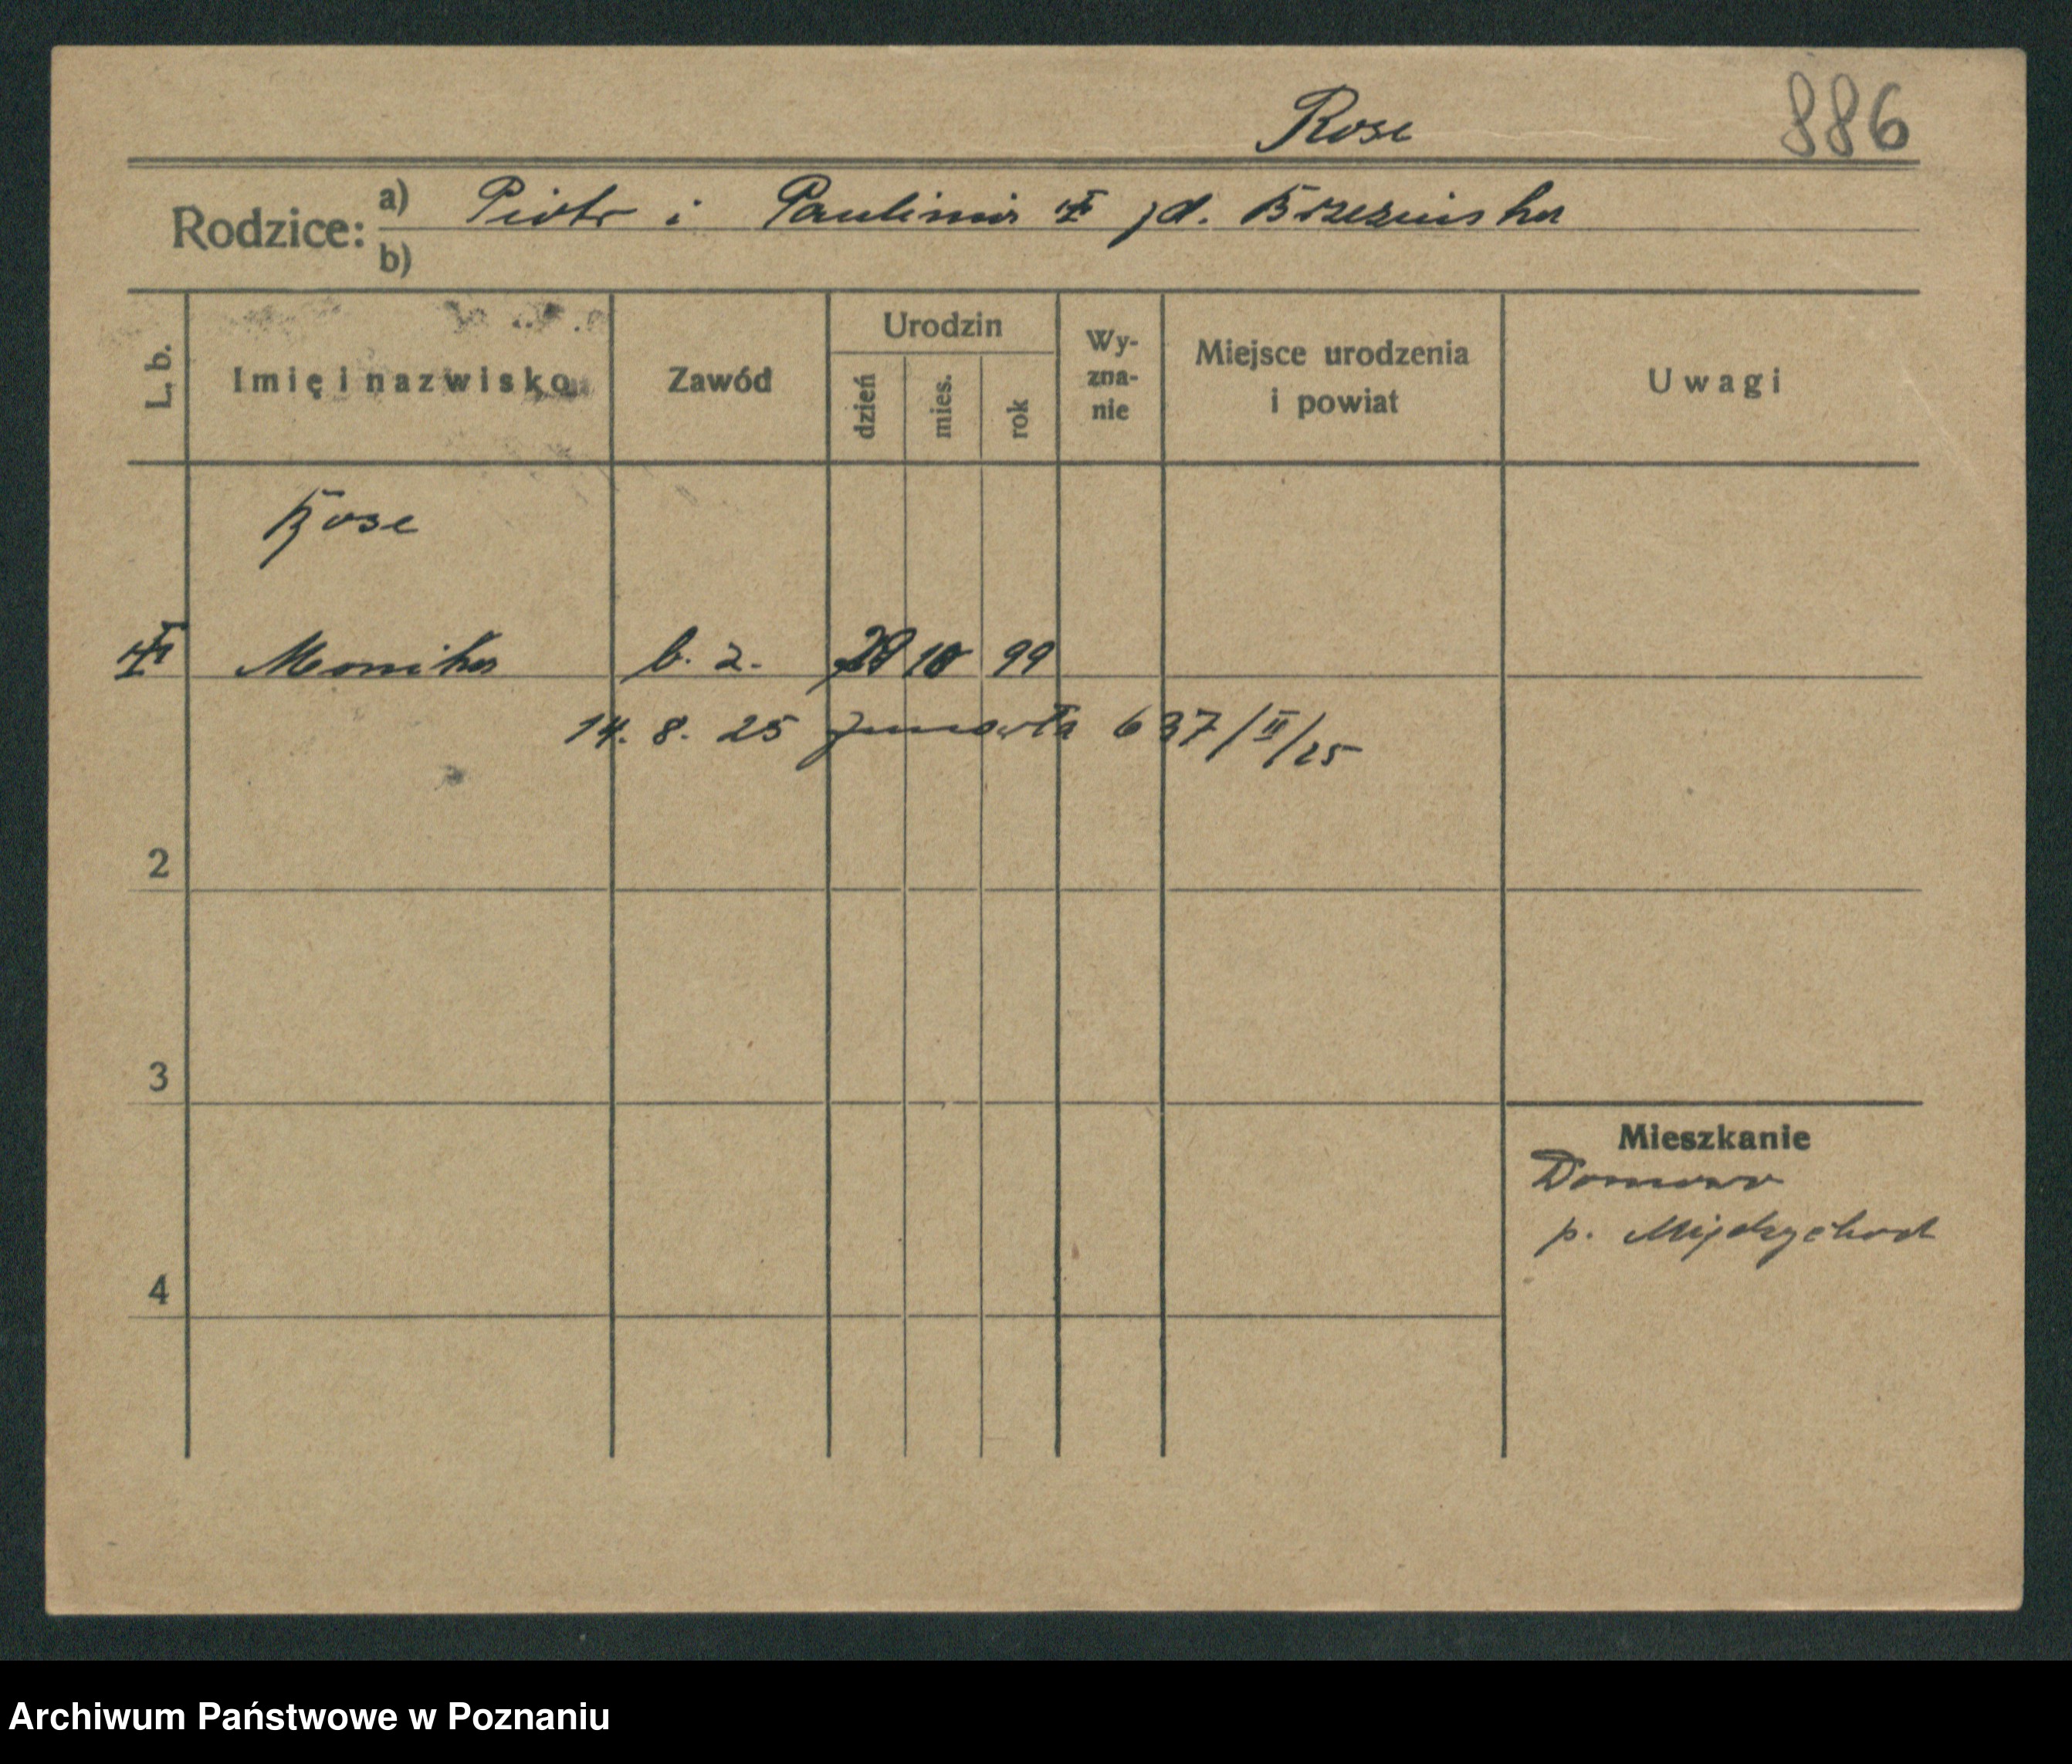 Rose
886
Rodzice: a) Piotr i Paulina † zd. Brzezinska
b)
L. b. Imię i nazwisko Zawód Urodzin dzień mies. rok Wy-zna-nie Miejsce urodzenia i powiat Uwagi
Rose
† Monika b. z. 29 10 99
14. 8. 25 zmarła 637/II/25
2
3
Mieszkanie
Domowo
p. Międzychod
4
Archiwum Państwowe w Poznaniu